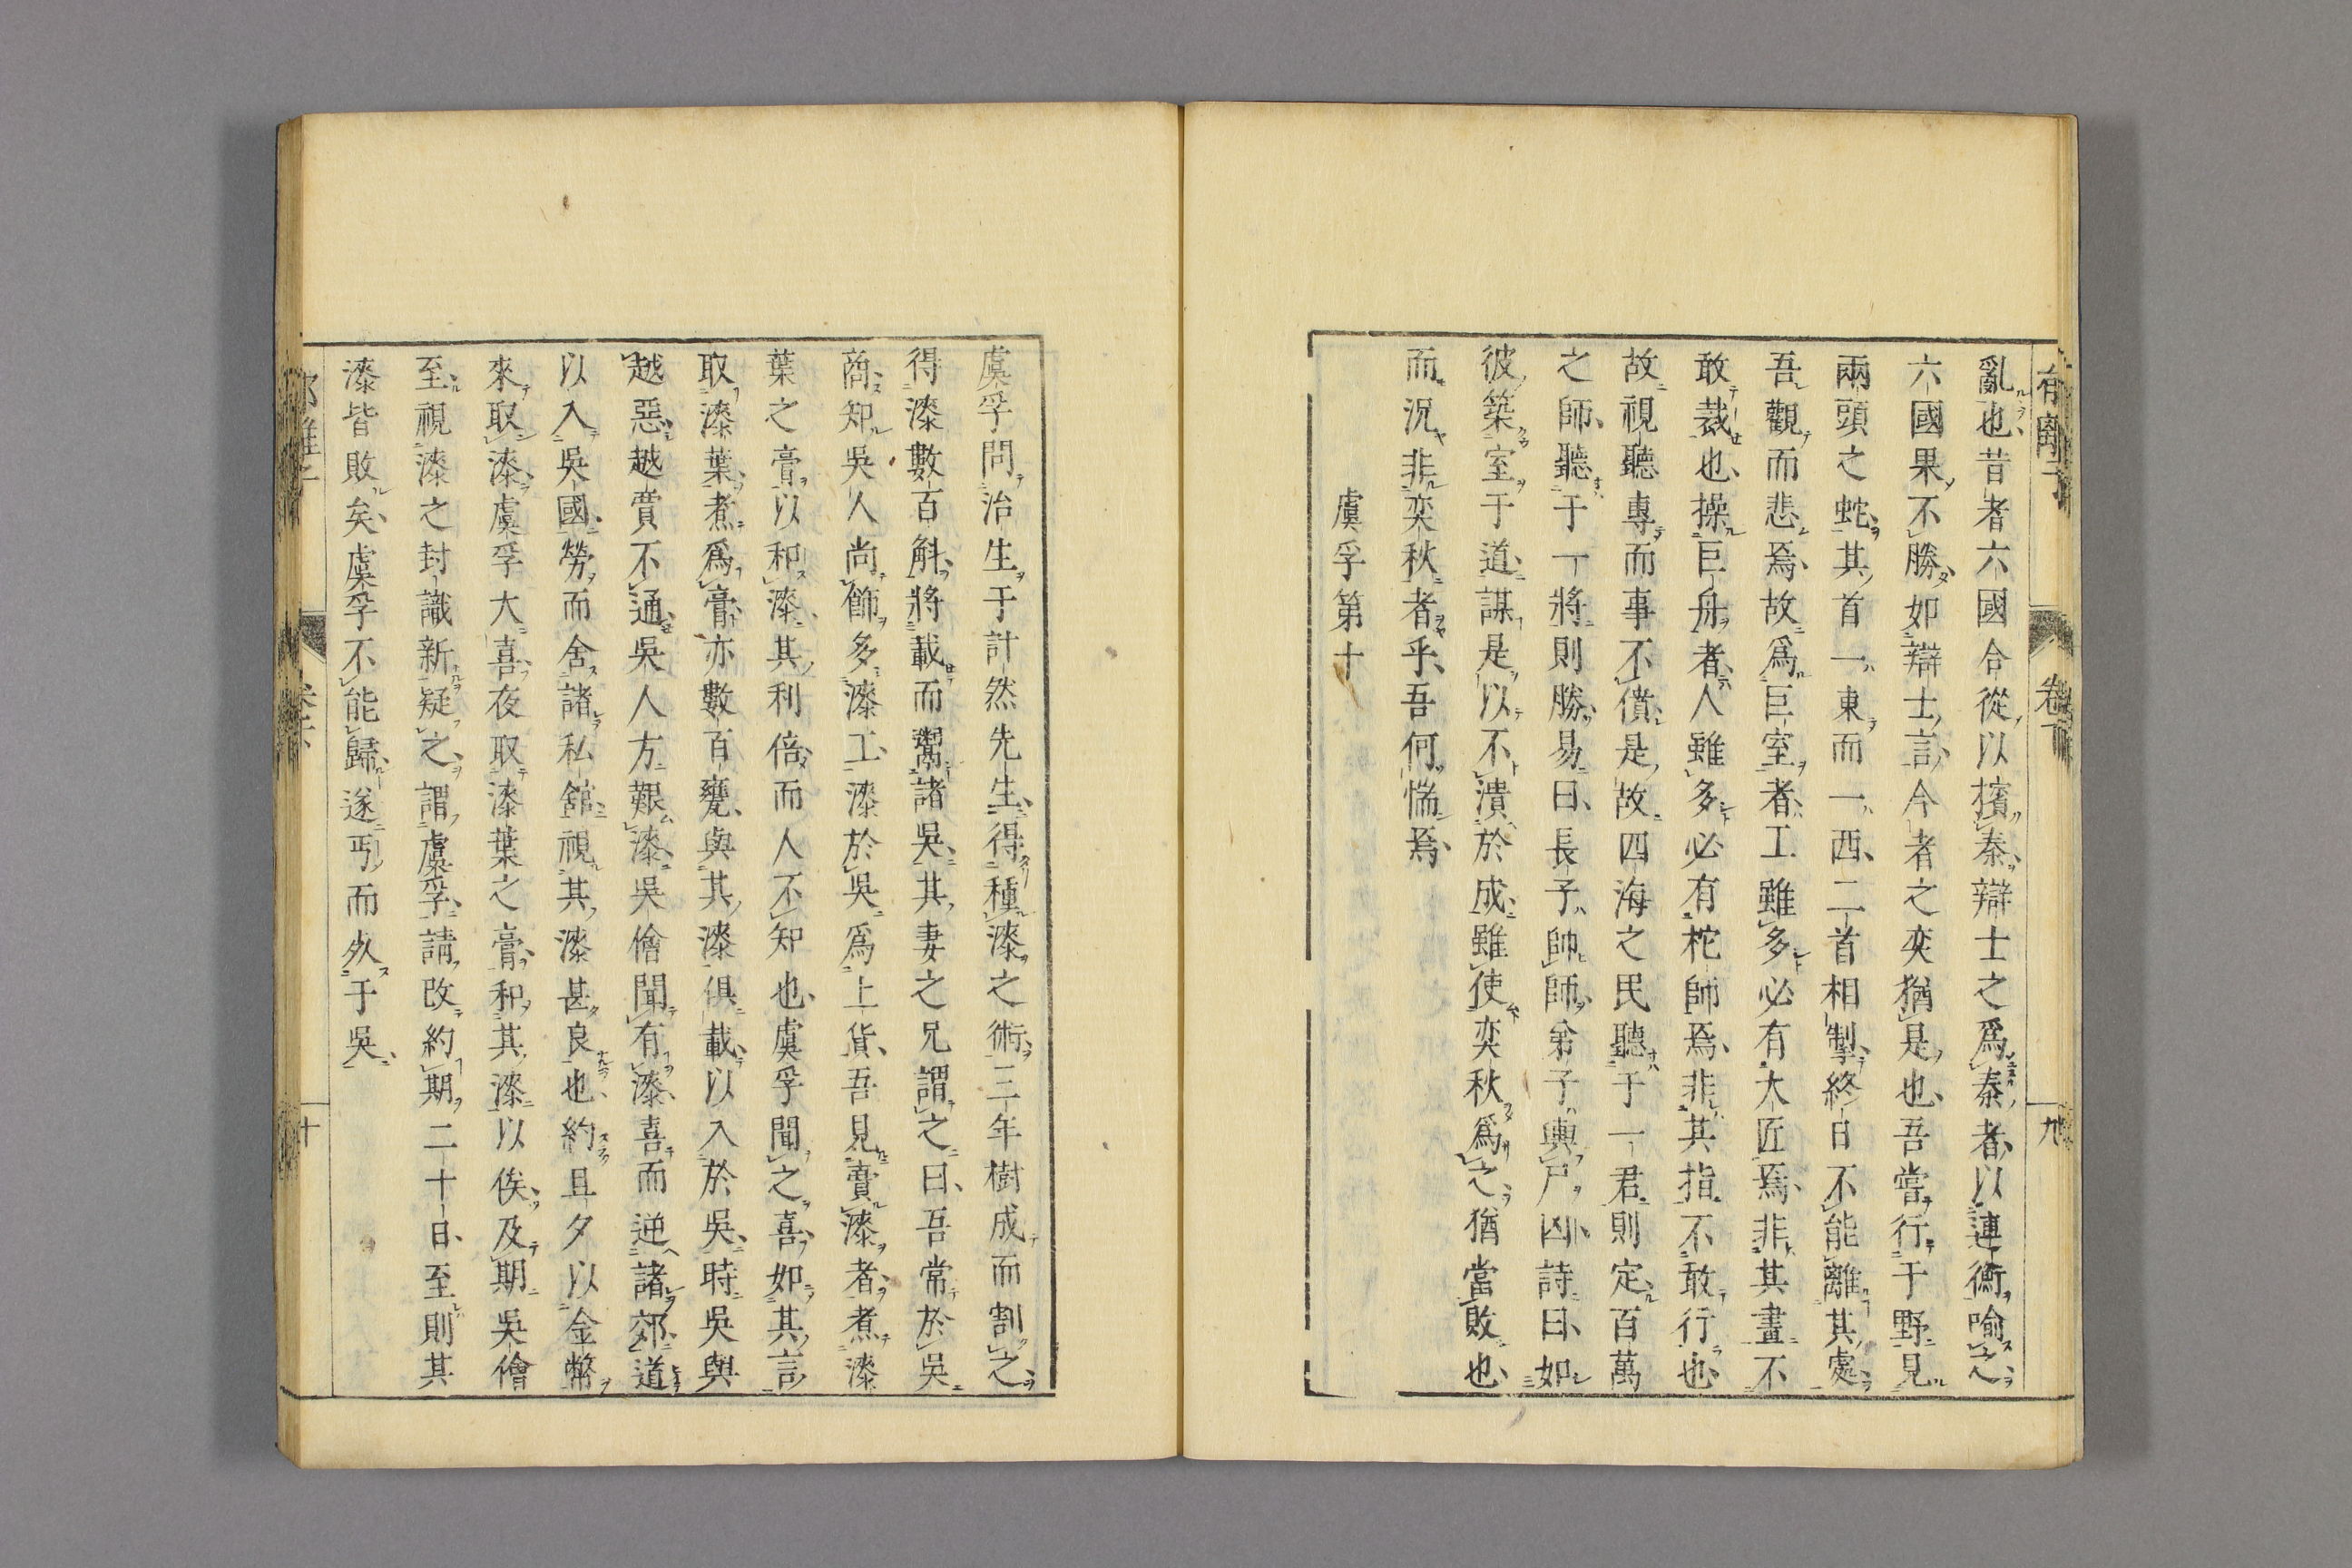 亂也昔者六國合從以擯秦辯士之爲秦者以連衡喻之
六國果不勝如辯士言今者之奕猶是也吾嘗行于野見
兩頭之蛇其首一東而一西二首相掣終日不能離其處
吾觀而悲焉故爲巨室者工雖多必有大匠焉非其畫不
敢裁也操巨舟者人雖多必有柁師焉非其指不敢行也
故視聽專而事不僨是故四海之民聽于一君則定百萬
之師聽于一將則勝易曰長子帥師弟子輿尸凶詩曰如
彼築室于道謀是以不潰於成雖使奕秋爲之猶當敗也
而況非奕秋者乎吾何惴焉
虞孚第十
卷下
九
虞孚問治生于計然先生得種漆之術三年樹成而割之
得漆數百斛將載而鬻諸吳其妻之兄謂之曰吾常於吳
商知吳人尚飾多漆工漆於吳爲上貨吾見賣漆者煮漆
葉之膏以和漆其利倍而人不知也虞孚聞之喜如其言
取漆葉煮爲膏亦數百甕與其漆俱載以入於吳時吳與
越惡越賈不通吳人方艱漆吳儈聞有漆喜而逆諸郊道
以入吳國勞而舍諸私舘視其漆甚良也約旦夕以金幣
來取漆虞孚大喜夜取漆葉之膏和其漆以俟及期吳儈
至視漆之封識新疑之謂虞孚請改約期二十日至則其
漆皆敗矣虞孚不能歸遂丐而死于吳
十